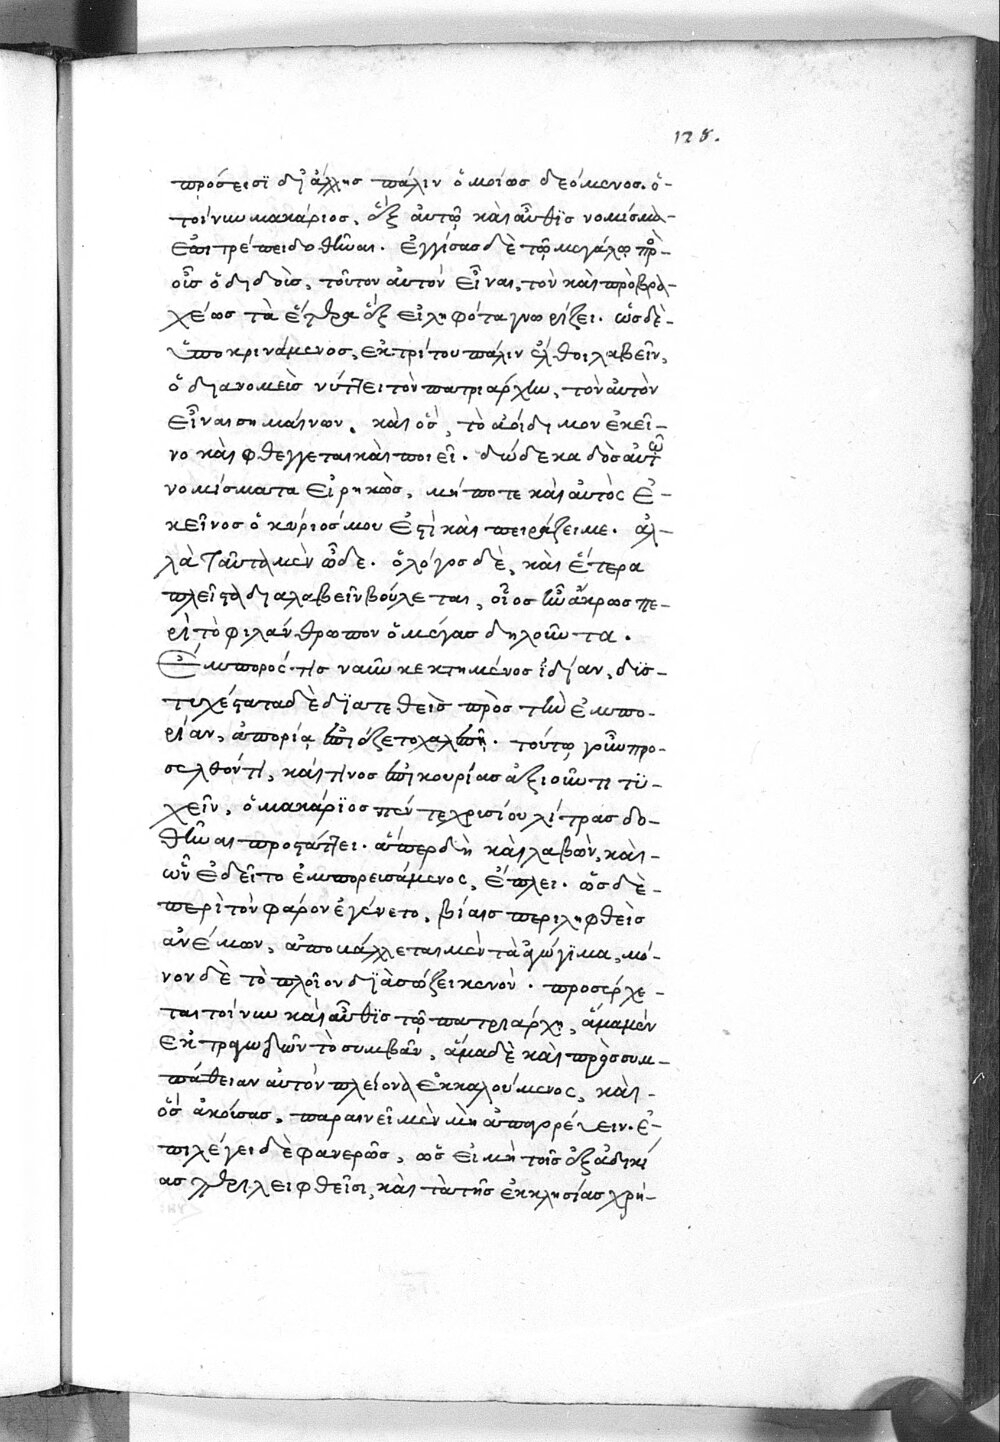 128.
πρόσεισϊ δι' ἄλλης πάλιν ὁμοίως δεόμενος. ὁ-
τοίνυν μακάριος, ἓξ αὐτῷ καὶ αὖθϊς νομίσμα-
ἐπιτρέπει δοθῆναι. ἐγγίσας δὲ τῷ μεγάλῳ πρὸ-
οἷς ὁ διδοὺς, τοῦτον αὐτὸν εἶναι, τὸν καὶ πρὸ βρα-
χέως τὰ ἕτερα ἓξ εἰληφότα γνωρίζει. ὡς δὲ-
ὑποκρινάμενος, ἐκ τρίτου πάλιν ἔλθοι λαβεῖν,
ὁ διανομεὺς νύττει τὸν πατριάρχην, τὸν αὐτὸν
εἶναι σημαίνων. καὶ ὃς, τὸ ἀοίδιμον ἐκεῖ-
νο καὶ φθέγγεται καὶ ποιεῖ. δώδεκα δὸς αὐτῷ
νομίσματα εἰρηκὼς, μήποτε καὶ αὐτὸς ἐ-
κεῖνος ὁ κύριός μου ἐστὶ καὶ πειράζει με. ἀλ-
λὰ ταῦτα μὲν ὧδε. ὁ λόγος δὲ, καὶ ἕτερα
πλεῖστα διαλαβεῖν βούλεται, οἷος ἦν ἄκρως πε-
ρὶ τὸ φιλάνθρωπον ὁ μέγας δηλοῦντα.
Ἔμπορός τις ναῦν κεκτημένος ἰδίαν, δϊσ-
τυχέστατα δὲ δϊατεθεὶς πρὸς τὴν ἐμπο-
ρίαν, ἀπορίᾳ ἐπιέζετο χαλεπῇ. τούτῳ γοῦν προ-
σελθόντι, καί τινος ἐπικουρίας ἀξιοῦντι τϋ-
χεῖν, ὁ μακάρϊος πέντε χρυσίου λίτρας δο-
θῆναι προστάττει. ἅπερ δὴ καὶ λαβὼν, καὶ-
ὧν ἐδεῖτο ἐμπορευσάμενος, ἔπλει. ὡς δὲ-
περὶ τὸν φάρον ἐγένετο, βίαις περιληφθεὶς
ἀνέμων, ἀποβάλλεται μὲν τὰ ἀγώγϊμα, μό-
νον δὲ τὸ πλοῖον δϊασώζει κενόν. προσέρχε-
ται τοίνυν καὶ αὖθϊς τῷ πατριάρχῃ, ἅμα μὲν
ἐκτραγῳδῶν τὸ συμβὰν, ἅμα δὲ καὶ πρὸς συμ-
πάθειαν αὐτὸν πλείονα ἐκκαλούμενος, καὶ-
ὃς ἀκούσας, παραινεῖ μὲν μὴ ἀπαγορεύειν. ἐ-
πιλέγει δὲ φανερῶς, ὡς εἰ μὴ τοῖς ἐξ ἀδικί
ας περιλειφθεῖσι, καὶ τὰ τῆς ἐκκλησίας χρή-